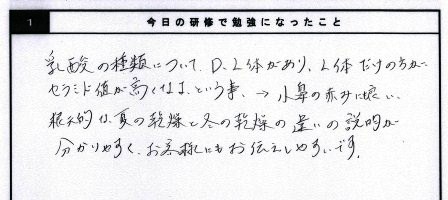 1 今日の研修で勉強になったこと
乳酸の種類について、D、L体があり、L体だけの方が
セラミド値が高くなる、という事、→ 小鼻の赤みに良い、
根本的な、夏の乾燥と冬の乾燥の違いの説明が
分かりやすく、お客様にもお伝えしやすいです。